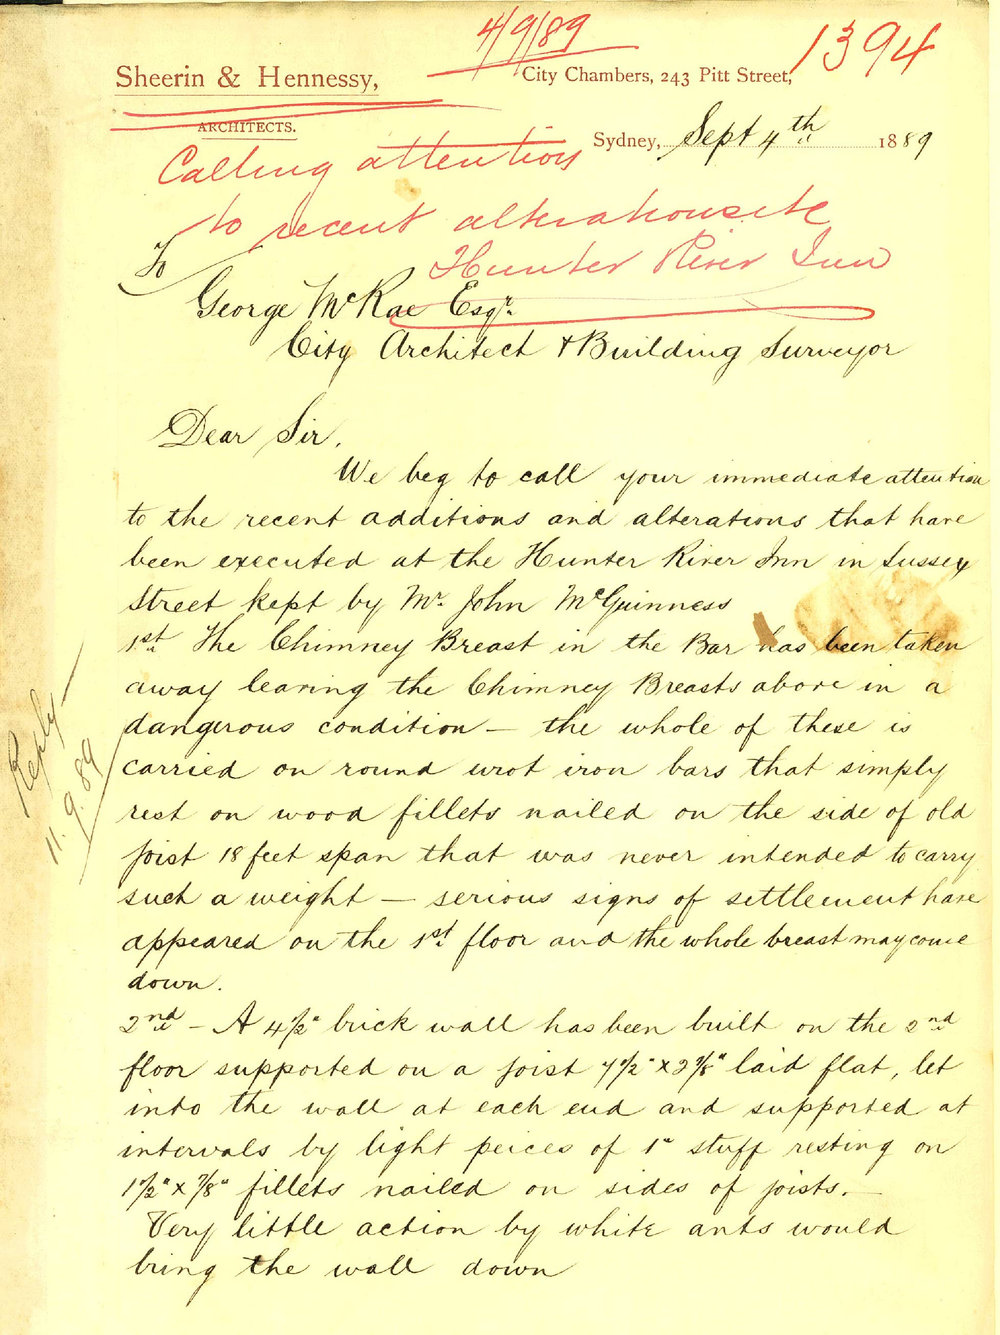 4/9/89
1394
Sheerin & Hennessy,
City Chambers, 243 Pitt Street,
ARCHITECTS.
Sydney, Sept 4th 1889
Calling attention
to recent alterations etc
Hunter River Inn
To
George McRae Esqr.
City Architect & Building Surveyor
Dear Sir,
We beg to call your immediate attention
to the recent additions and alterations that have
been executed at the Hunter River Inn in Sussex
Street kept by Mr. John McGuinness
1st The Chimney Breast in the Bar has been taken
away leaving the Chimney Breasts above in a
dangerous condition — the whole of these is
carried on round wrot iron bars that simply
rest on wood fillets nailed on the side of old
joist 18 feet span that was never intended to carry
such a weight — serious signs of settlement have
appeared on the 1st floor and the whole breast may come
down.
2nd — A 4½" brick wall has been built on the 2nd
floor supported on a joist 7½" x 2⅞" laid flat, let
into the wall at each end and supported at
intervals by light peices of 1" stuff resting on
1½" x ⅞" fillets nailed on sides of joists. —
Very little action by white ants would
bring the wall down
Reply —
11.9.89